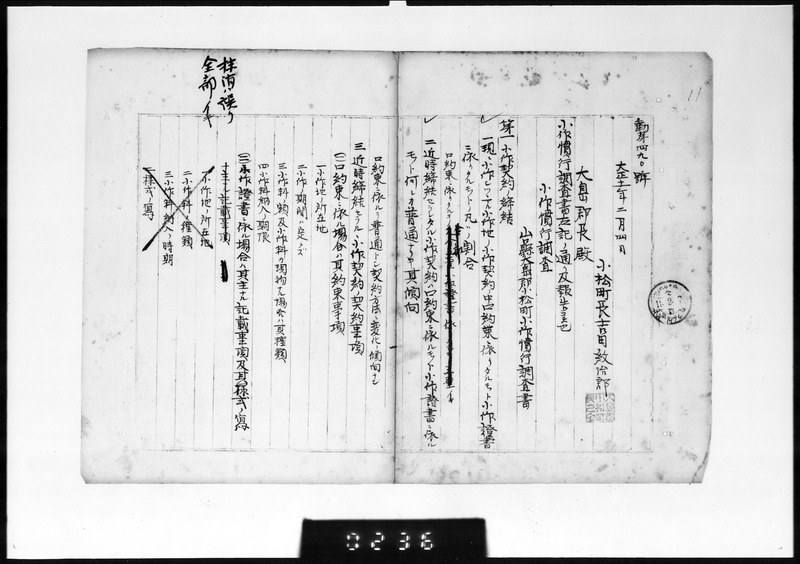 11
勧第四九〇號
大正十一年二月四日
小松町長吉田紋治郎
大島郡長殿
小作慣行調査書左記ノ通リ及報告候也
小作慣行調査
山口縣大島郡小松町小作慣行調査書
第一 小作契約ノ締結
一 現ニ小作シツヽアル小作地ノ小作契約中口約束ニ依リタルモノト小作證書
ニ依リタルモノトノ凡ソノ割合
口約束ニ依リタルモノ
二 近時締結セラレタル小作契約ハ口約束ニ依ルモノト小作證書ニ依ル
モノト何レカ普通ナリヤ其傾向
口約束ニ依ルヲ普通トシ契約方法ニ変化ノ傾向ナシ
三 近時締結セラルヽ小作契約ノ契約事項
(一)口約束ニ依ル場合ハ其約束事項
一 小作地ノ所在地
二 小作ノ期間ハ定メズ
三 小作料ノ額及小作料カ現物ナル場合ハ其種類
四 小作料納入ノ期限
(二)小作證書ニ依ル場合ハ其主ナル記載事項及其様式ノ寫
主ナル記載事項
一 小作地ノ所在地
二 小作料ノ種類
三 小作料納入ノ時期
様式ノ寫
抹消ハ誤リ
全部イキ
0236